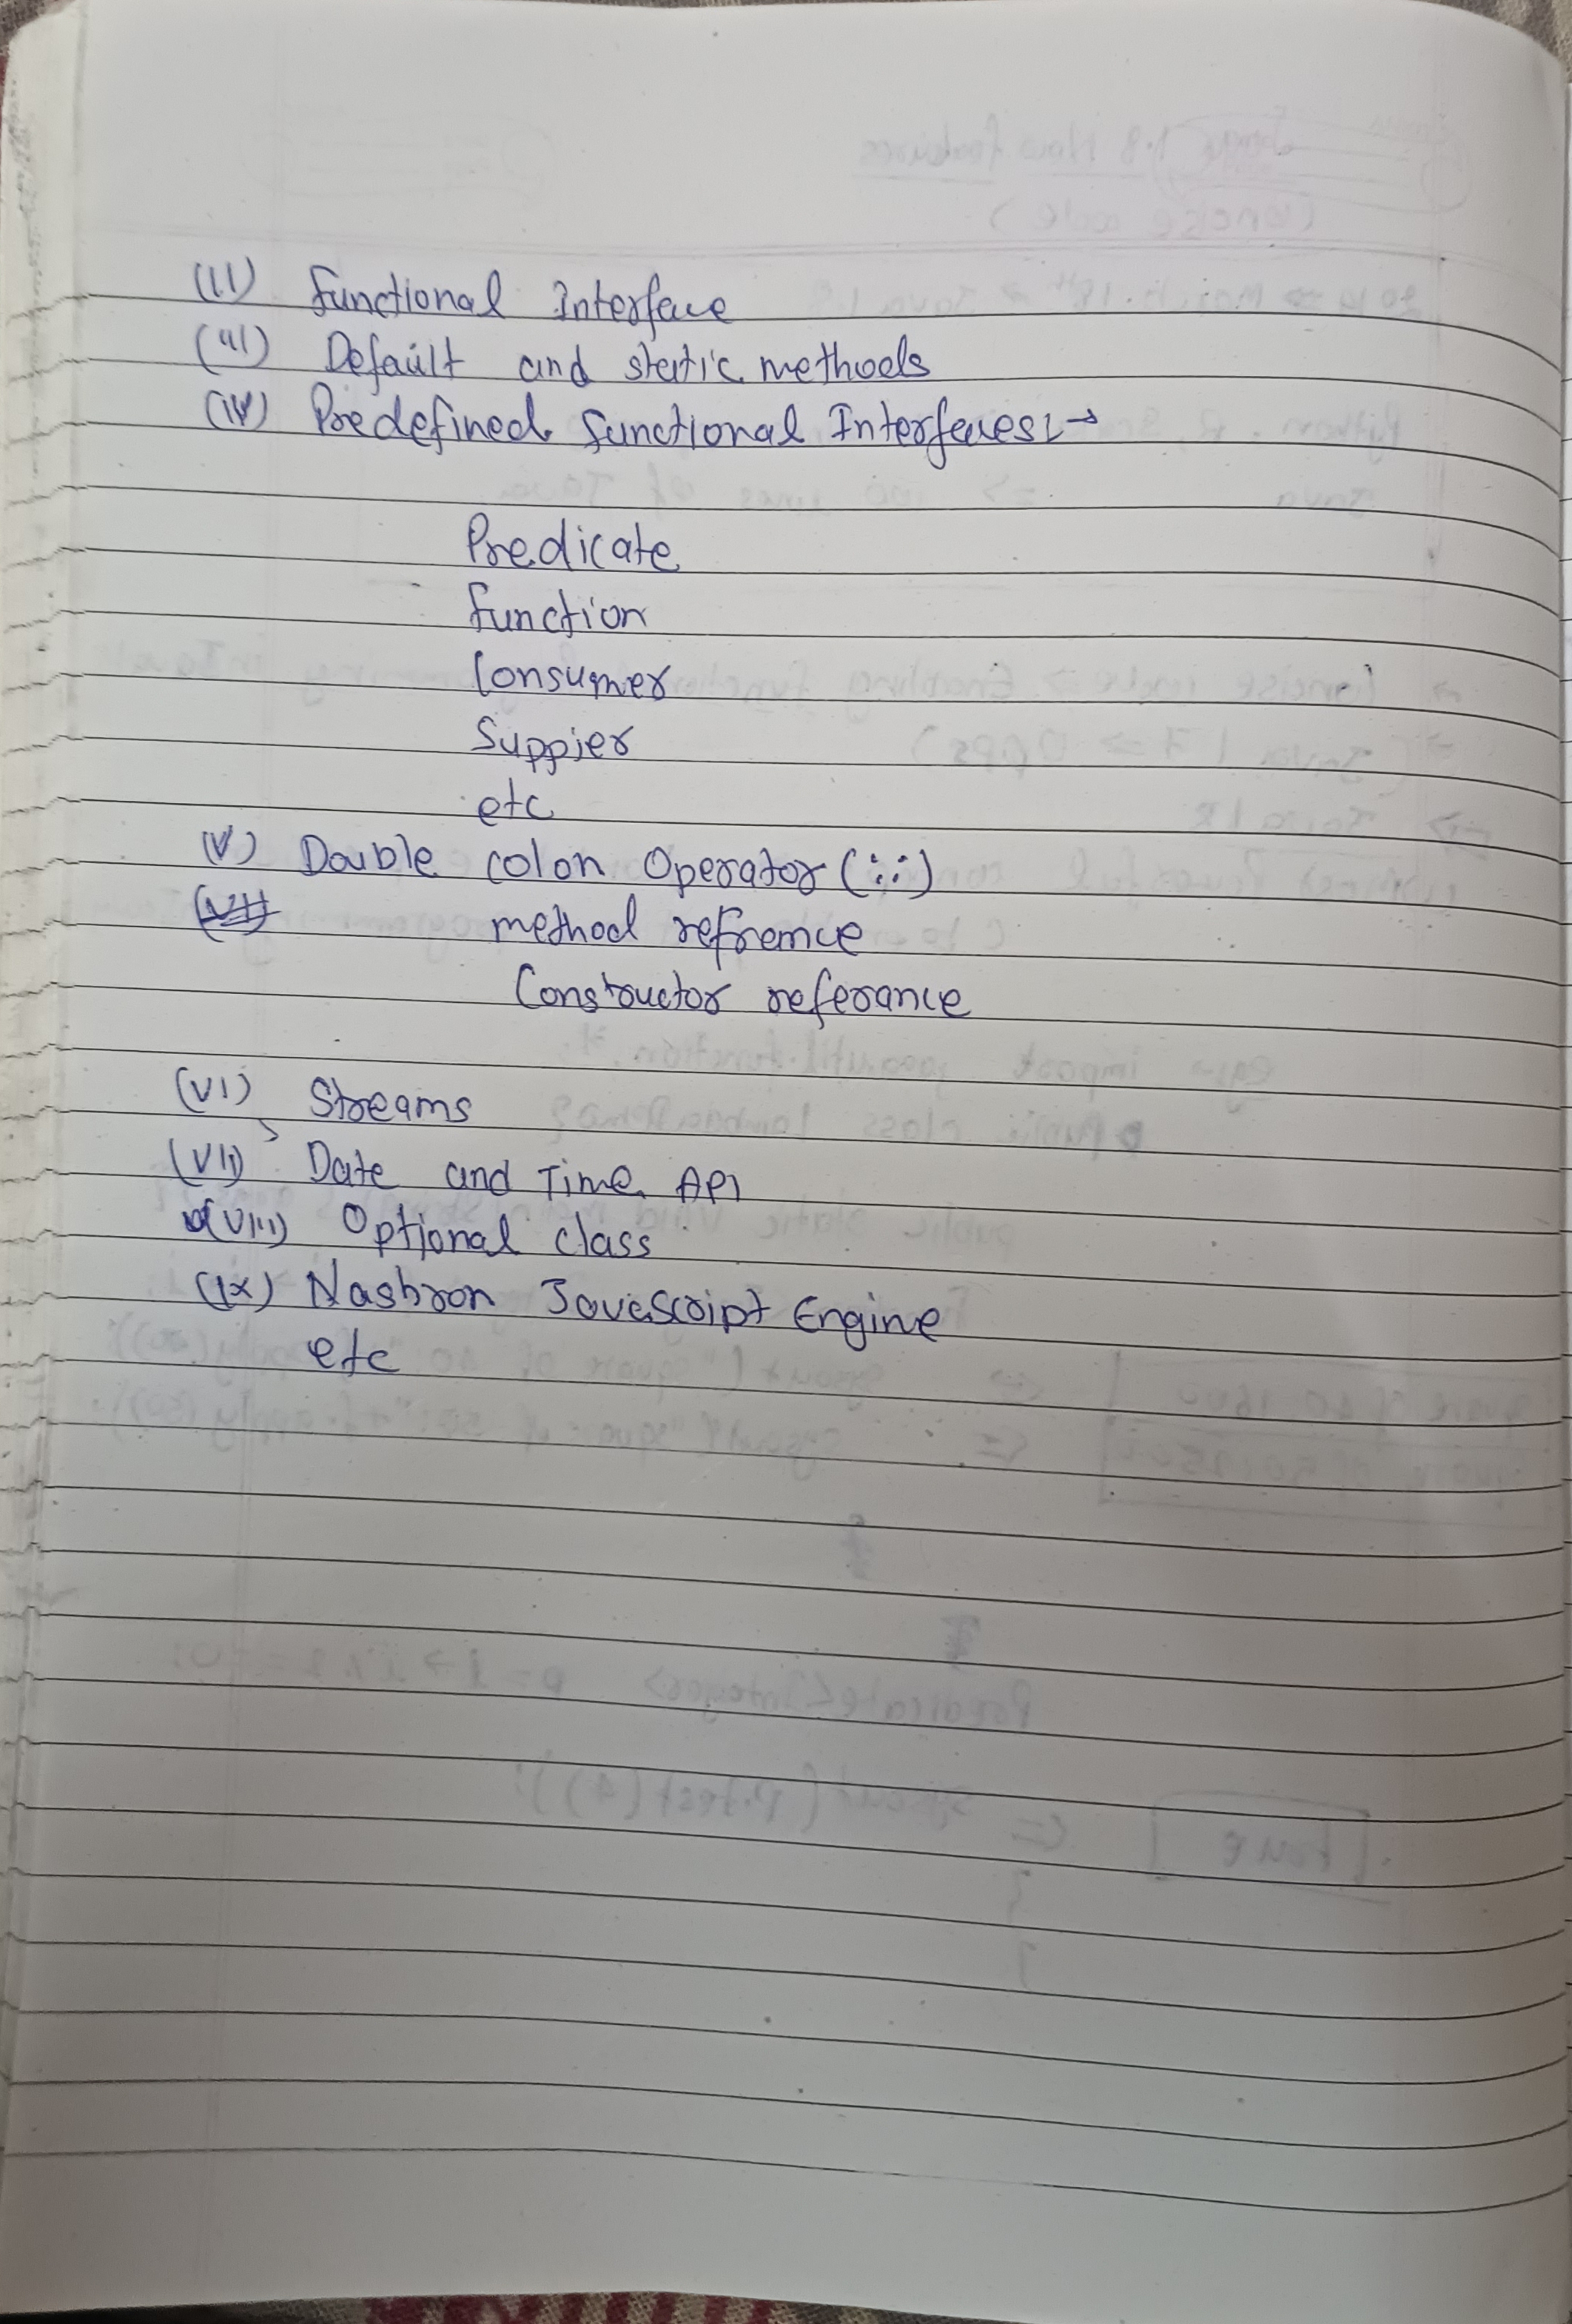 (ii) Functional Interface
(iii) Default and static methods
(iv) Predefined functional Interfaces:→
Predicate
function
Consumer
Suppier
etc
(V) Double colon Operator (::)
method refrence
Constructor referance
(VI) Streams
(VII) Date and Time API
(VIII) Optional class
(IX) Nashron Javascript Engine
etc